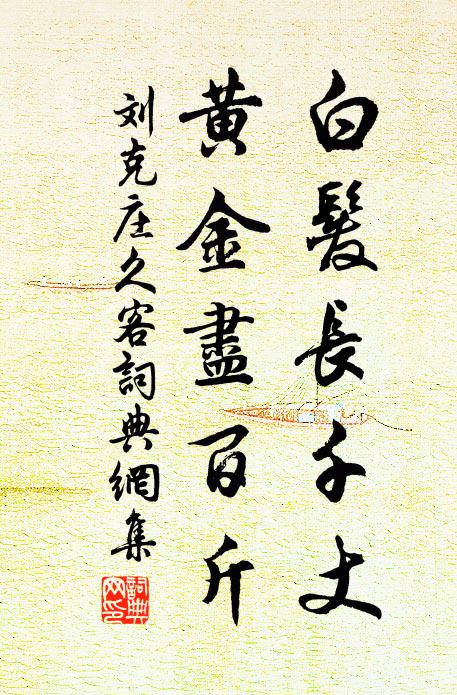 白髮長千丈
黃金盡百斤
刘克庄久客詞典網集
詞典网印